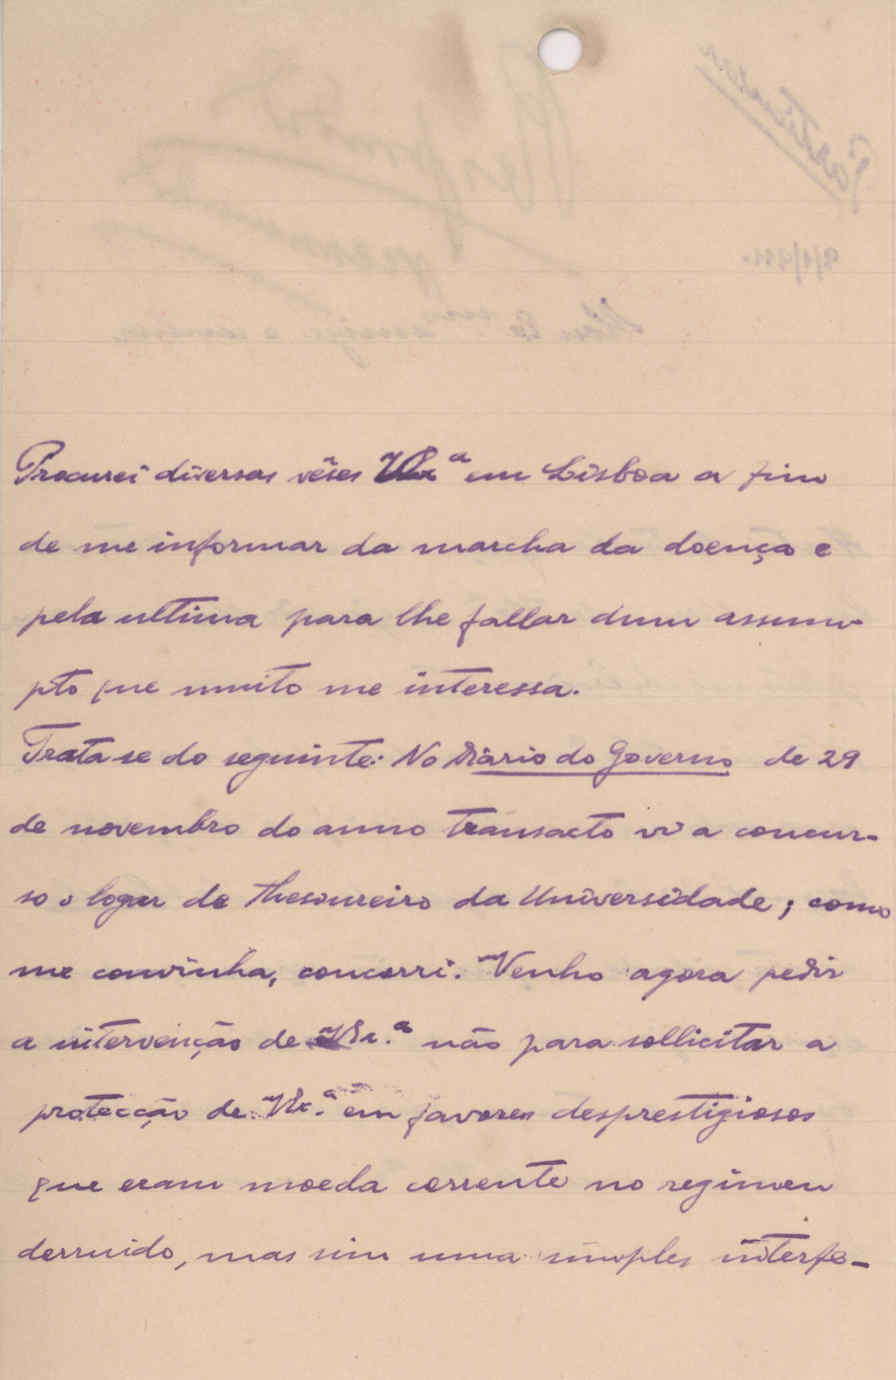 Procurei diversas vêses V. Ex.ª em Lisboa a fim
de me informar da marcha da doença e
pela ultima para lhe fallar dum assum-
pto que muito me interessa.
Trata-se do seguinte: No Diário do Governo de 29
de novembro do anno transacto vi a concur-
so o logar de thesoureiro da Universidade; como
me convinha, concorri. Venho agora pedir
a intervenção de V. Ex.ª não para sollicitar a
protecção de V. Ex.ª em favores desprestigiosos
que eram moeda corrente no regimen
derruido, mas sim uma simples interfe-